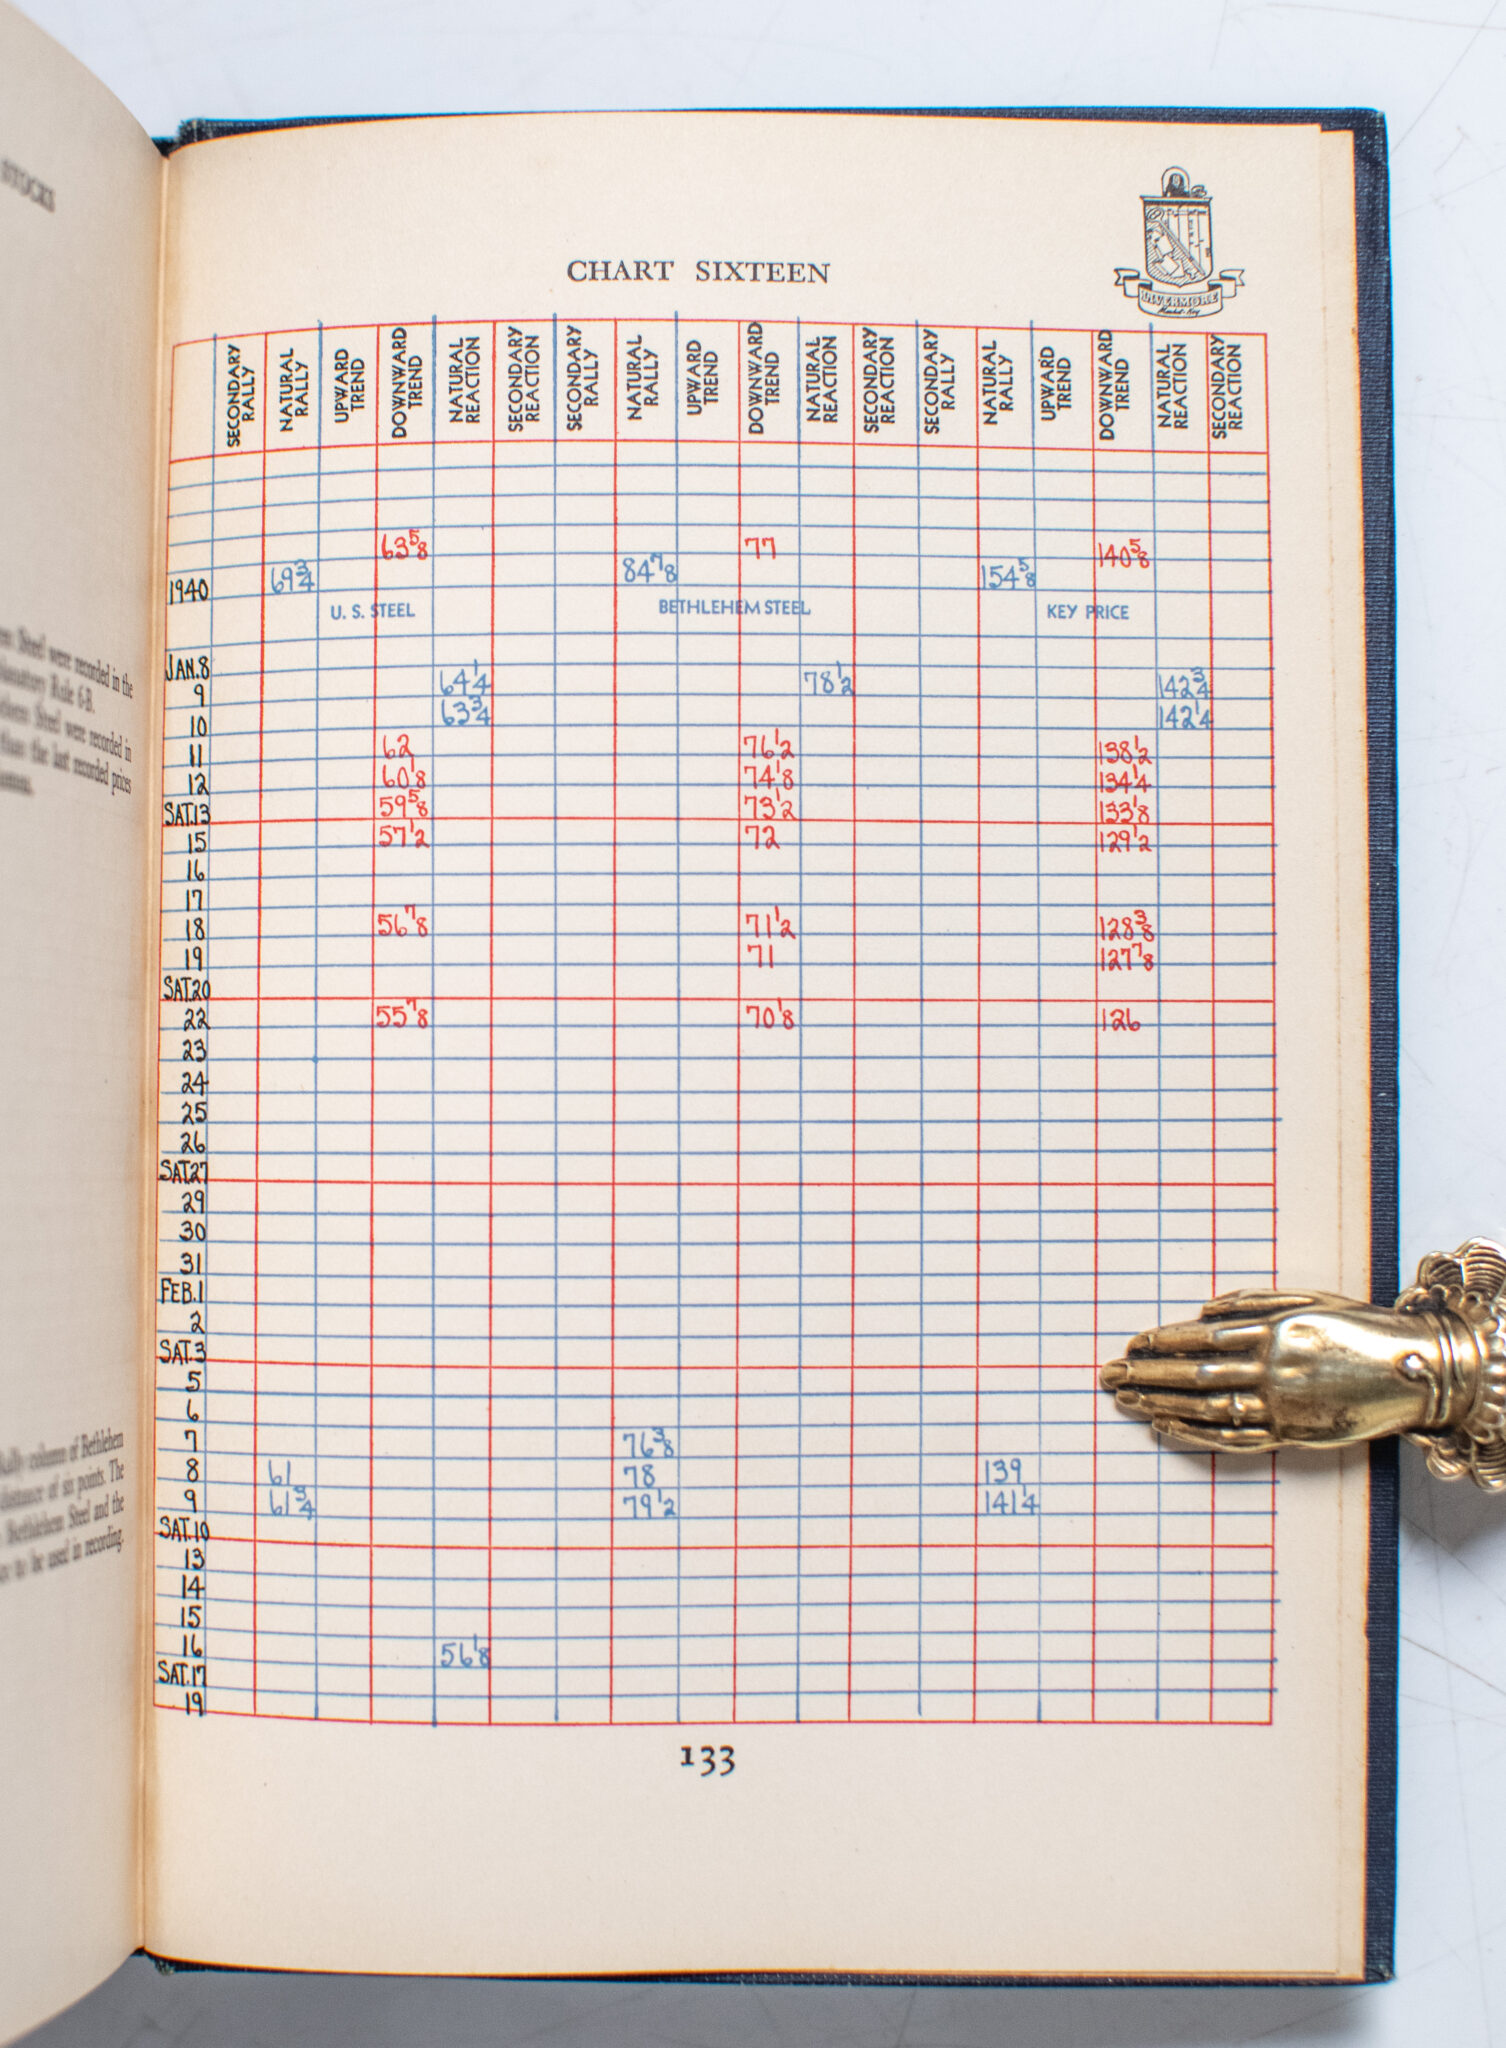 STOCKS
en Steel were recorded in the
Rule 6-B.
Steel were recorded in
than the last recorded prices
column of Bethlehem
distance of six points. The
Bethlehem Steel and the
to be used in recording.
CHART SIXTEEN
LIVERMORE
Market Key
SECONDARY RALLY NATURAL RALLY UPWARD TREND DOWNWARD TREND NATURAL REACTION SECONDARY REACTION SECONDARY RALLY NATURAL RALLY UPWARD TREND DOWNWARD TREND NATURAL REACTION SECONDARY REACTION SECONDARY RALLY NATURAL RALLY UPWARD TREND DOWNWARD TREND NATURAL REACTION SECONDARY REACTION
63 5/8 77 140 5/8
1940 69 3/4 84 7/8 154 5/8
U. S. STEEL BETHLEHEM STEEL KEY PRICE
JAN. 8
9 64 1/4 78 1/2 142 3/4
10 63 3/4 142 1/4
11 62 76 1/2 138 1/2
12 60 1/8 74 1/8 134 1/4
SAT. 13 59 5/8 73 1/2 133 1/8
15 57 1/2 72 129 1/2
16
17
18 56 7/8 71 1/2 128 3/8
19 71 127 7/8
SAT. 20
22 55 7/8 70 1/8 126
23
24
25
26
SAT. 27
29
30
31
FEB. 1
2
SAT. 3
5
6
7 76 3/8
8 61 78 139
9 61 3/4 79 1/2 141 1/4
SAT. 10
13
14
15
16 56 1/8
SAT. 17
19
133